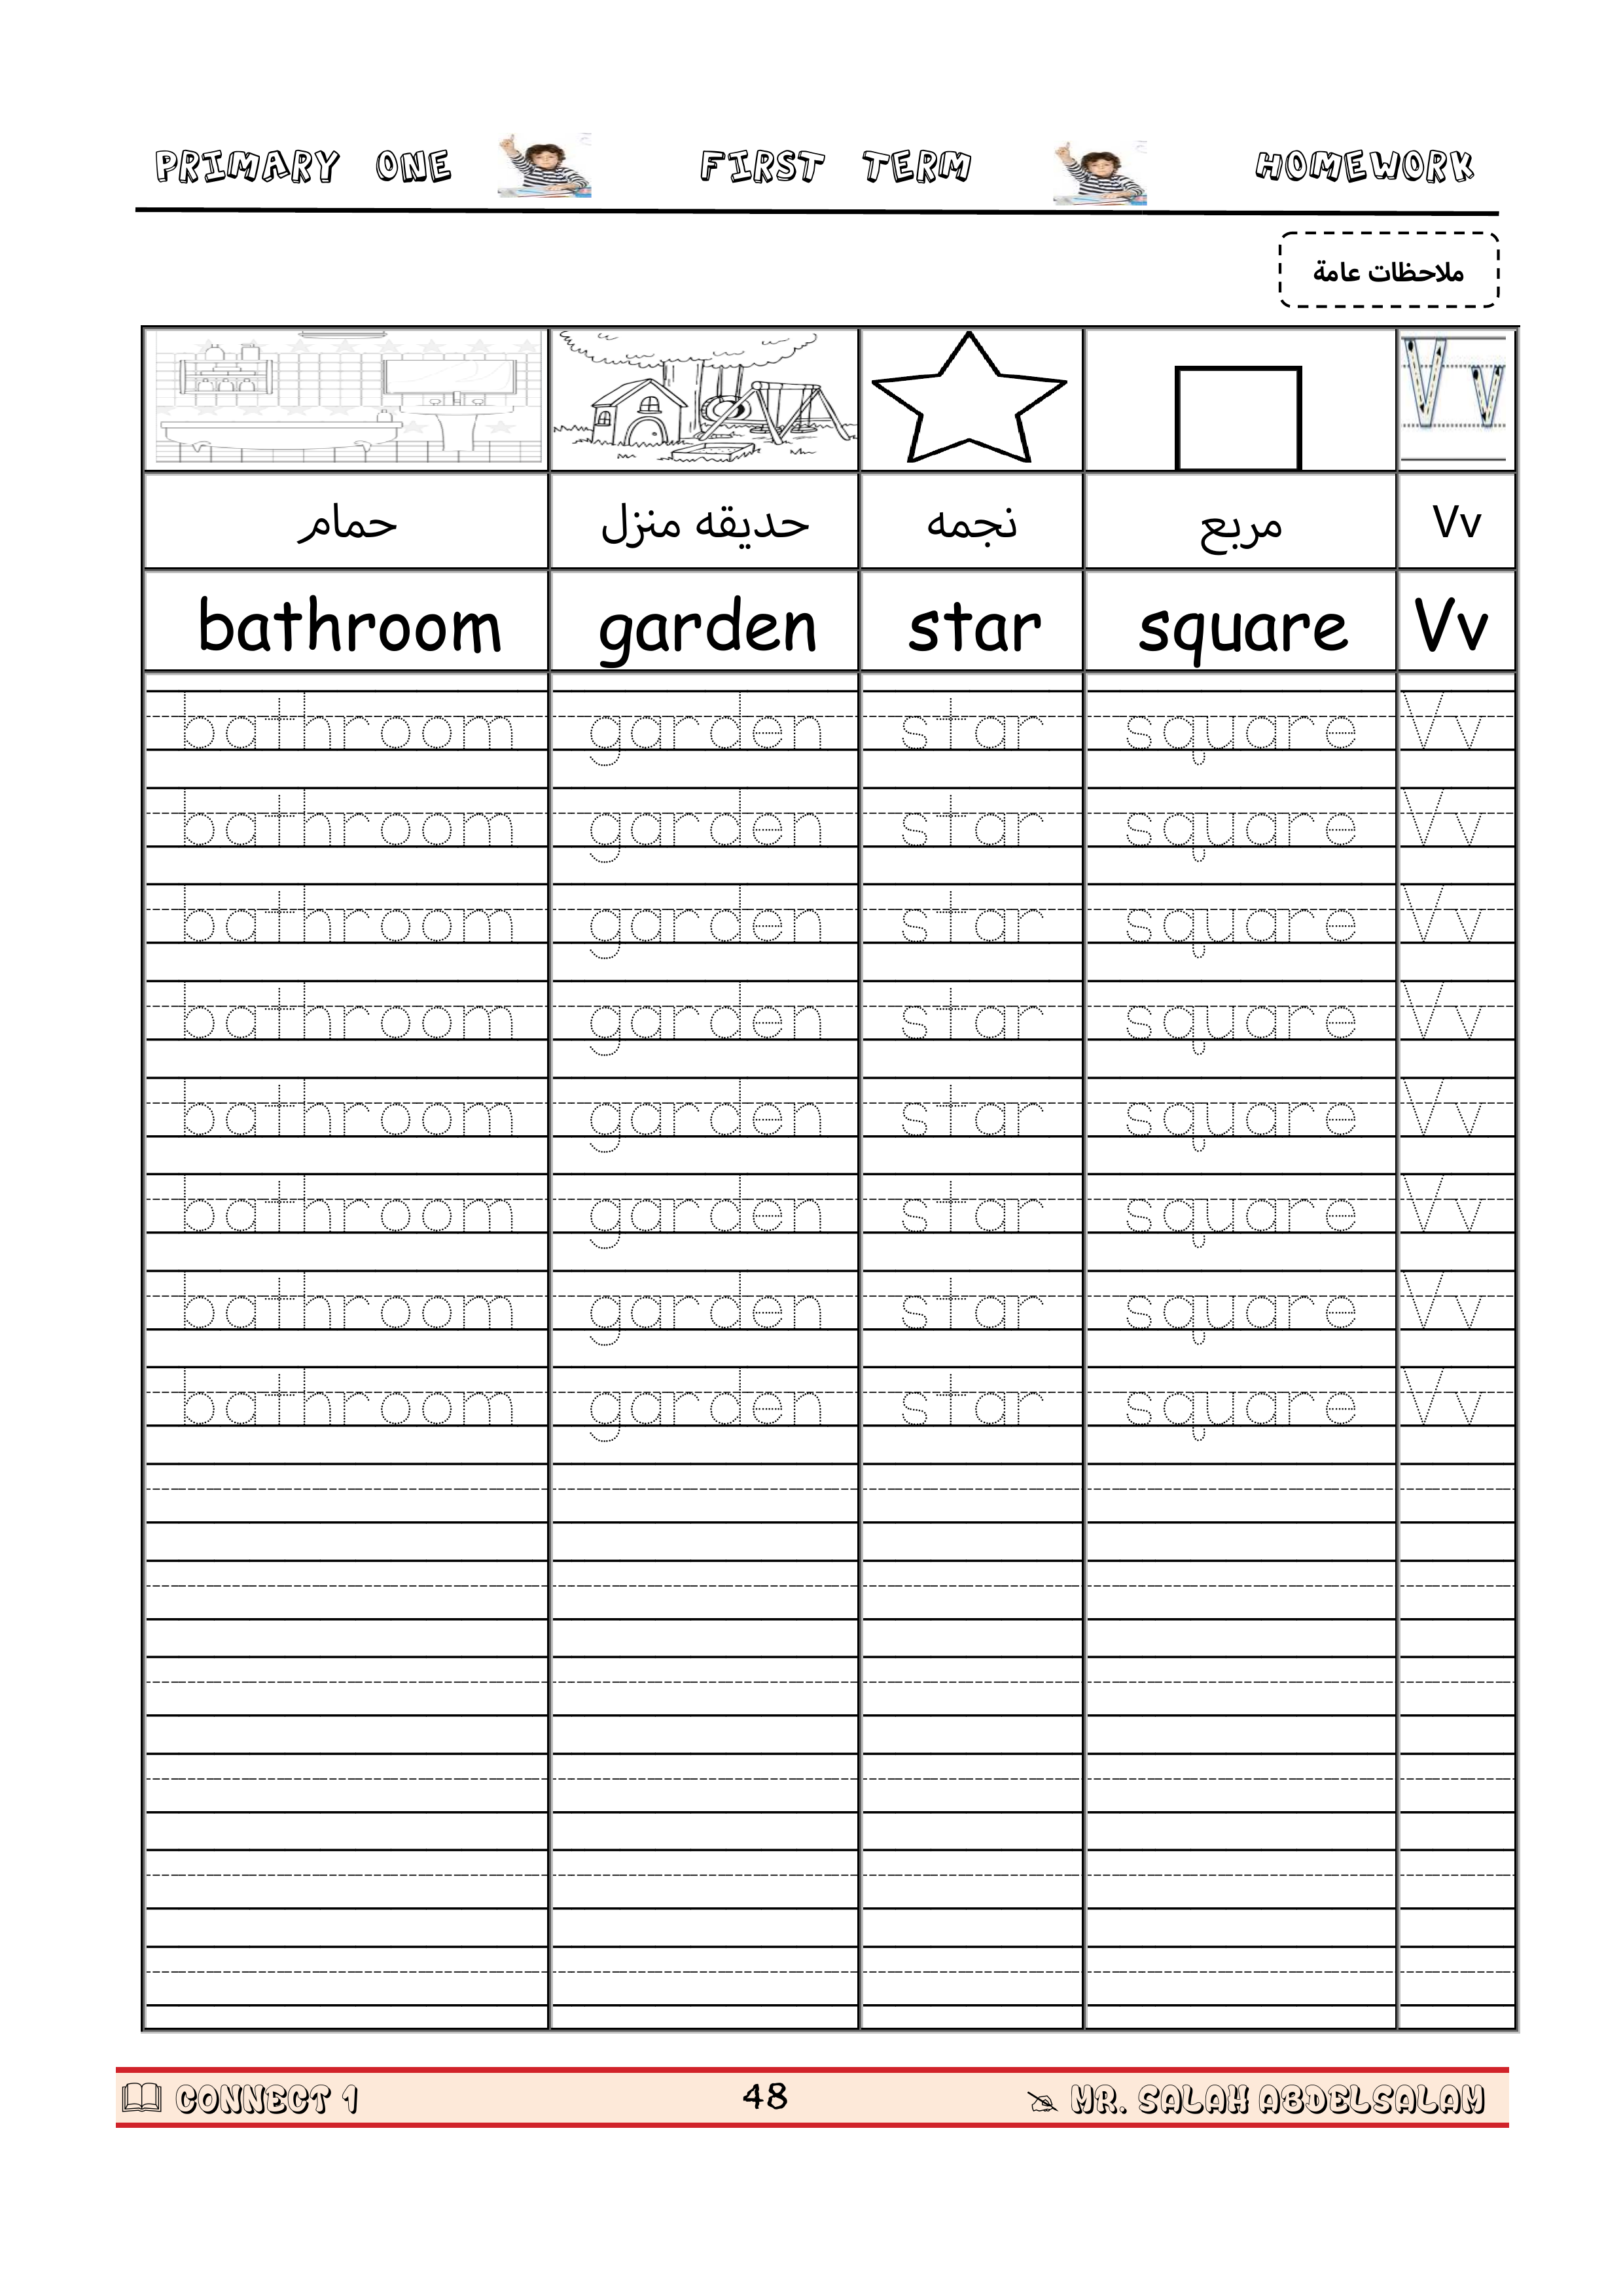 PRIMARY ONE FIRST TERM HOMEWORK
ملاحظات عامة
حمام حديقه منزل نجمه مربع Vv
bathroom garden star square Vv
bathroom garden star square Vv
bathroom garden star square Vv
bathroom garden star square Vv
bathroom garden star square Vv
bathroom garden star square Vv
bathroom garden star square Vv
bathroom garden star square Vv
bathroom garden star square Vv
CONNECT 1 48 MR. SALAH ABDELSALAM